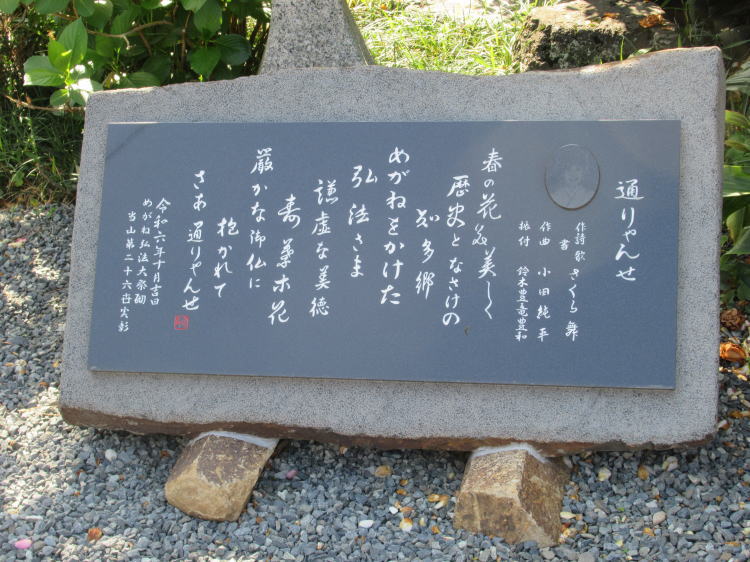 通りゃんせ
作詩 歌 さくら舞
書
作曲 小田純平
振付 鈴木豊竜豊和
春の花 美しく
歴史となさけの
知多郷
めがねをかけた
弘法さま
謙虚な美徳
寿 草木花
厳かな御仏に
抱かれて
さあ 通りゃんせ
令和六年十月吉日
めがね弘法大祭
当山第二十六世実彰